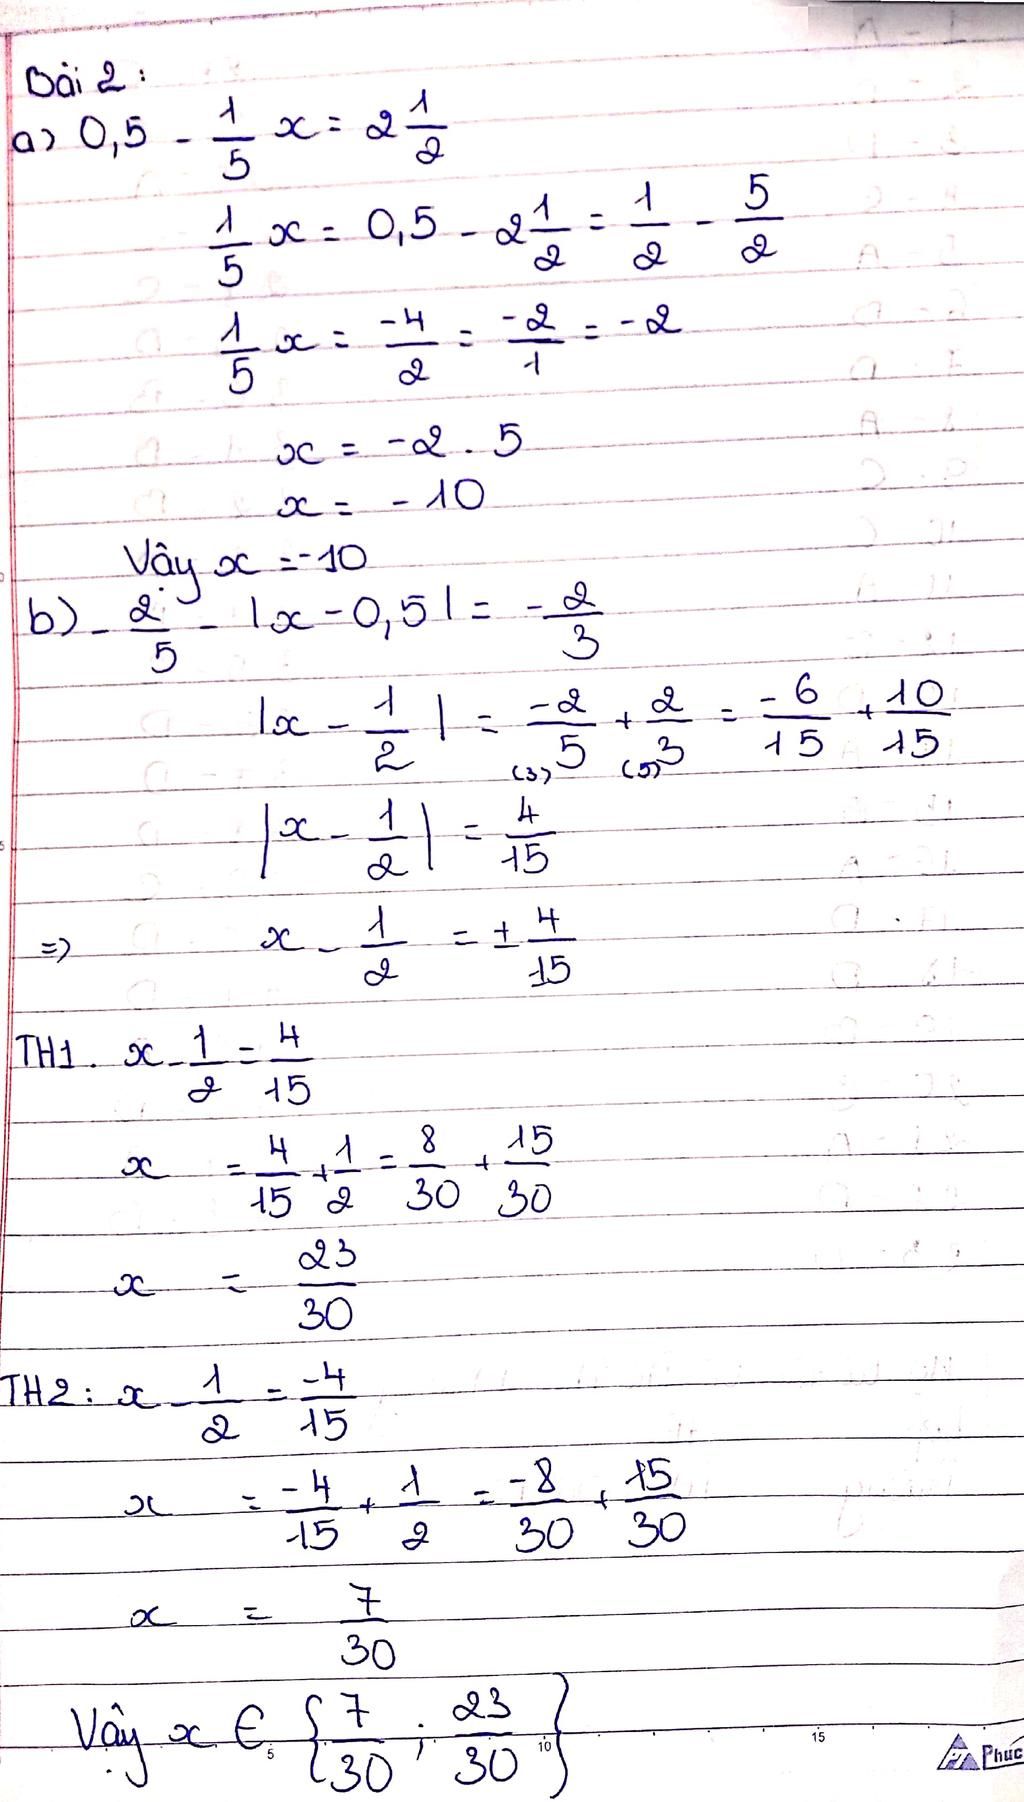 Bài 2:
a) 0,5 - 1/5 x = 2 1/2
1/5 x = 0,5 - 2 1/2 = 1/2 - 5/2
1/5 x = -4/2 = -2/1 = -2
x = -2 . 5
x = -10
Vậy x = -10
b) -2/5 - |x - 0,5| = -2/3
|x - 1/2| = -2/5 (3) + 2/3 (5) = -6/15 + 10/15
|x - 1/2| = 4/15
=> x - 1/2 = ± 4/15
TH1. x - 1/2 = 4/15
x = 4/15 + 1/2 = 8/30 + 15/30
x = 23/30
TH2: x - 1/2 = -4/15
x = -4/15 + 1/2 = -8/30 + 15/30
x = 7/30
Vậy x ∈ {7/30 ; 23/30}
5 10 15
Phúc